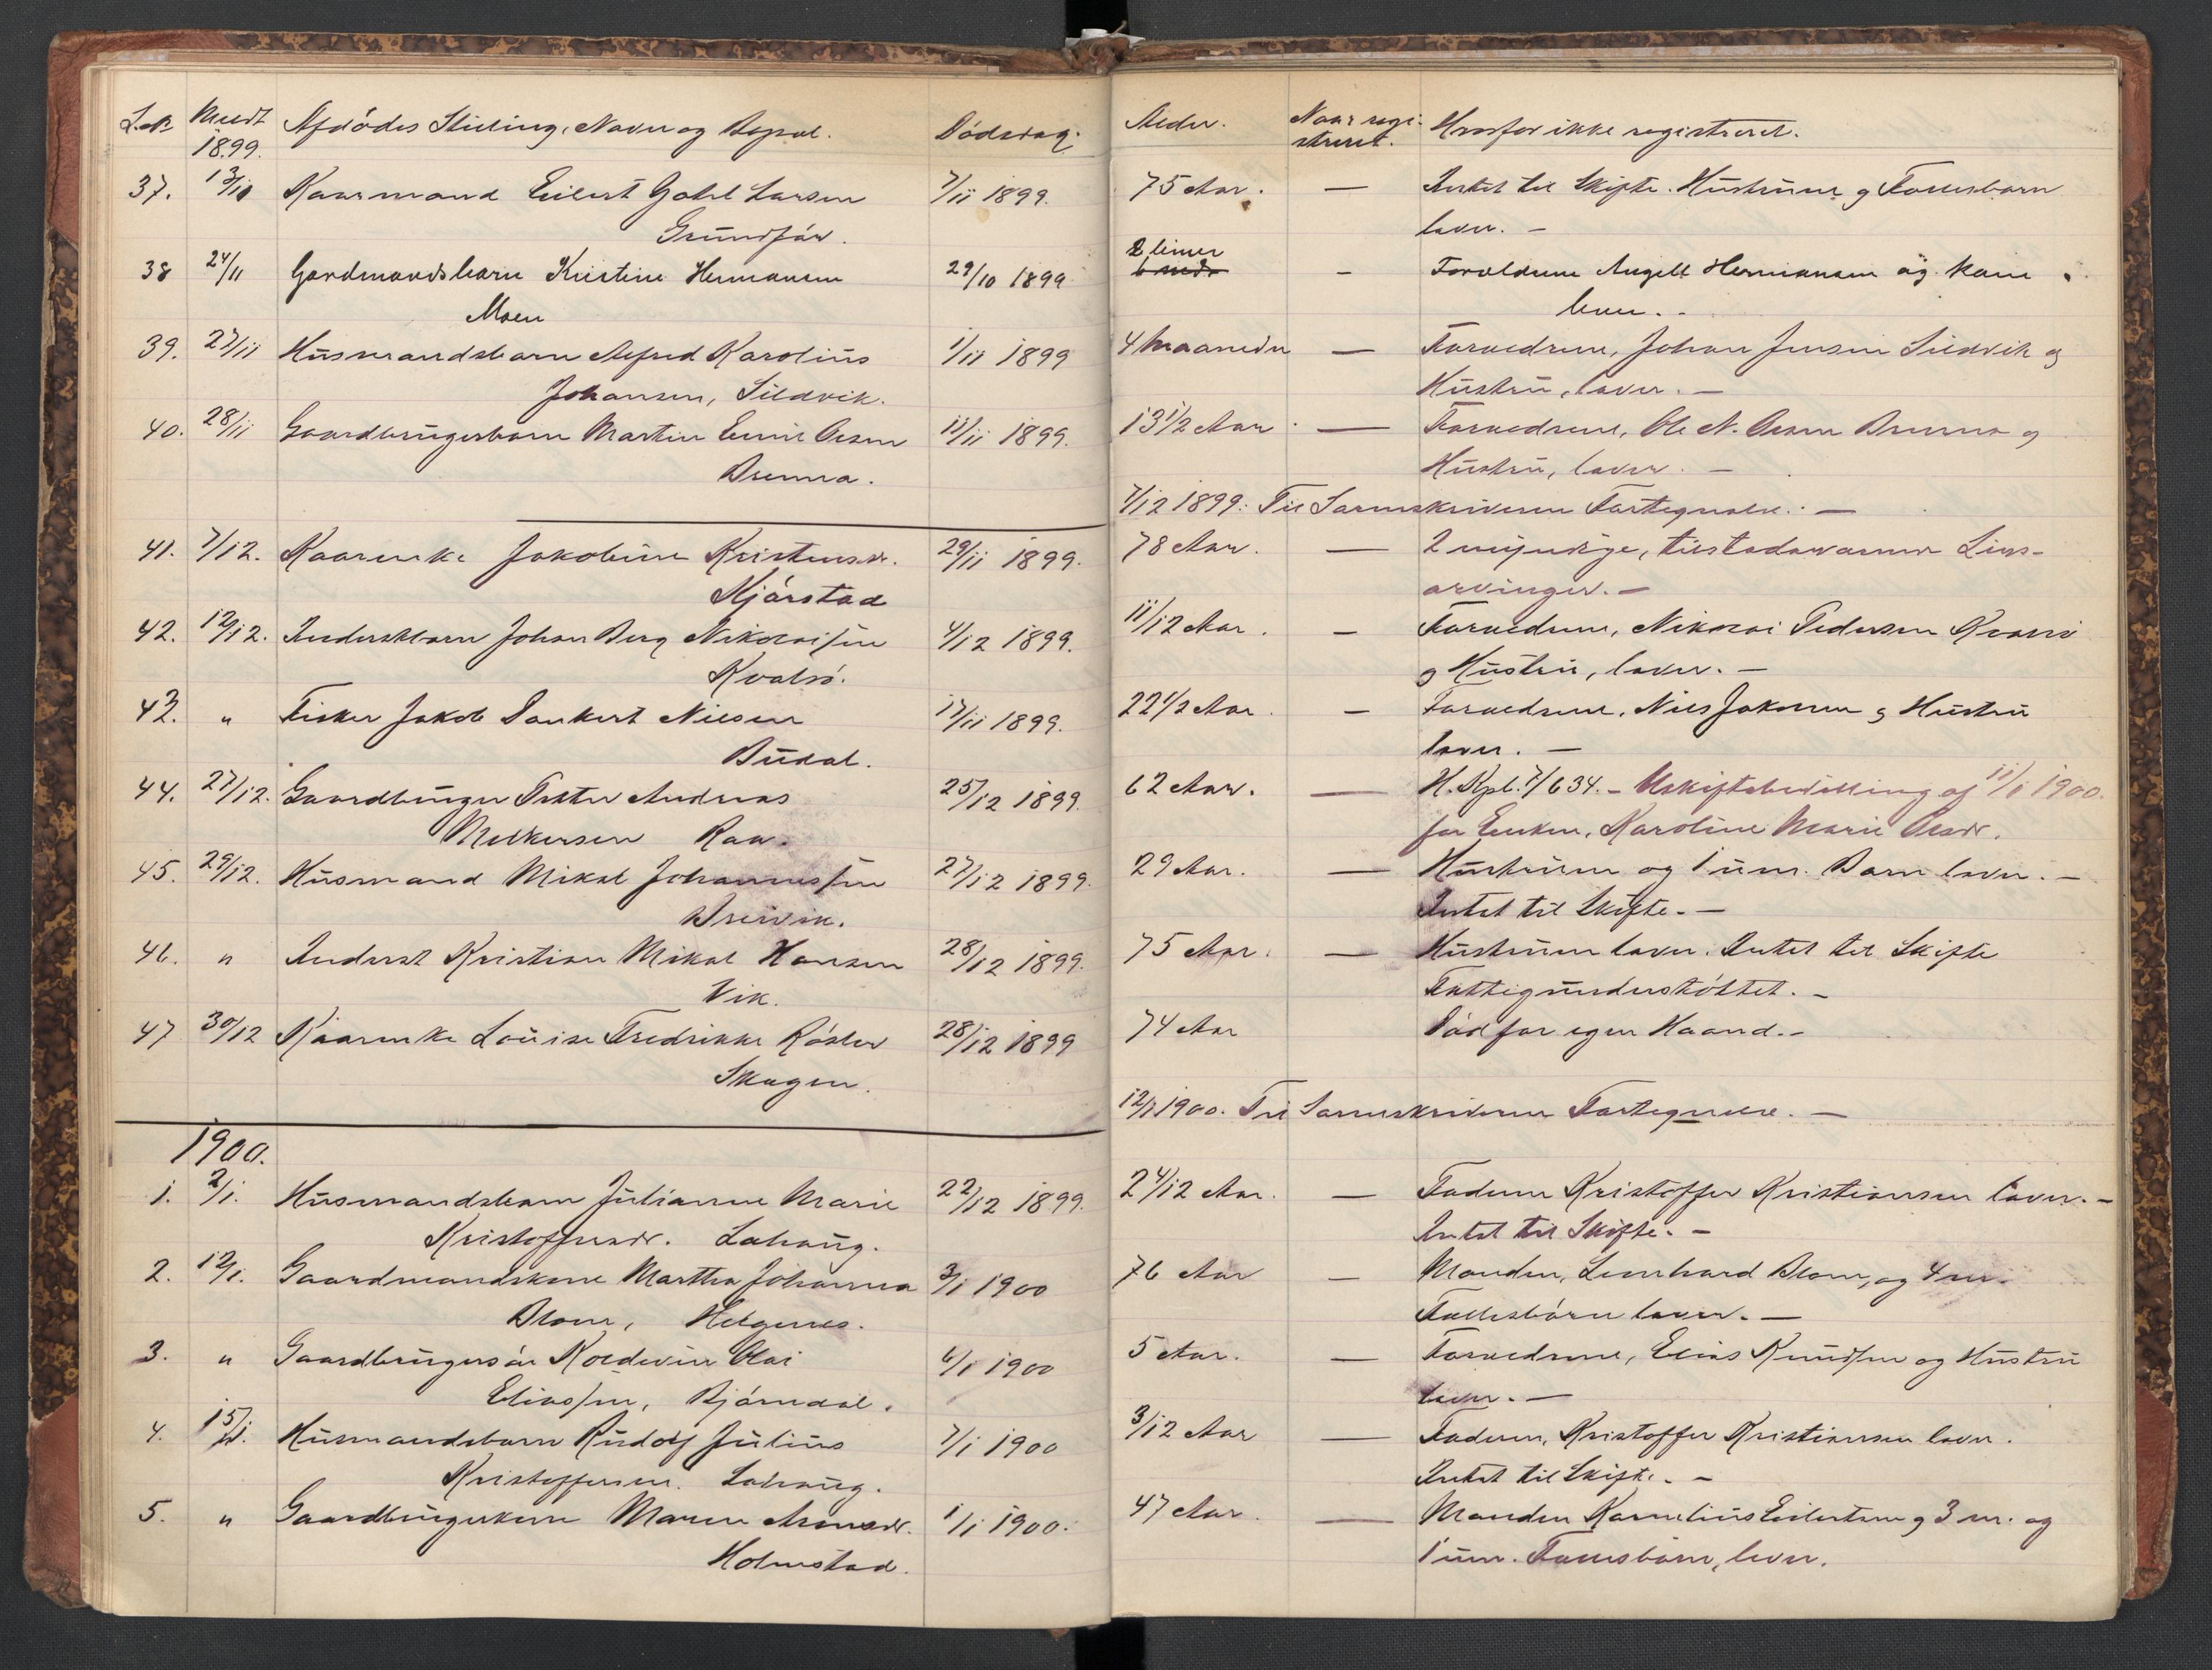 L.nr. Meldt Afdødes Stilling, Navn og Bopæl. Dødsdag.
1899.
37. 13/10 Kaarmand Eilert Gabel Larsen 7/11 1899.
Grundfør.
38 24/11 Gardmandsbarn Kristine Hermansen 29/10 1899
Moen
39. 27/11 Husmandsbarn Alfred Karolius 1/11 1899
Johansen, Sildvik.
40. 28/11 Gaardbrugerbarn Martin Emil Olsen 11/11 1899.
Brenna.
41. 7/12. Kaarenke Jakobine Kristensdr. 29/11 1899.
Kjørstad
42. 12/12. Inderstbarn Johan Berg Nikolaisen 4/12 1899.
Kvalsø.
43. " Fisker Jakob Dankert Nilsen 17/11 1899.
Budal.
44. 27/12. Gaardbruger Peter Andreas 25/12 1899
Melkersen Raa.
45. 29/12. Husmand Mikal Johannessen 27/12 1899.
Breivik.
46. " Inderst Kristian Mikal Hansen 28/12 1899.
Vik.
47 30/12 Kaarenke Louise Fredrikke Røsler 28/12 1899
Skagen.
1900.
1. 2/1. Husmandsbarn Julianne Marie 22/12 1899.
Kristoffersdr. Lahaug.
2. 12/1. Gaardmandskone Martha Johanna 3/1 1900
Blom, Helgenes.
3. " Gaardbrugersøn Koldevin Olai 6/1 1900
Eliassen, Bjørndal.
4. 15/1. Husmandsbarn Rudolf Julius 7/1 1900
Kristoffersen. Lahaug.
5. " Gaardbrugerkone Maren Arensdr. 1/1 1900.
Holmstad.
Alder. Naar regi- Hvorfor ikke registreret.
streret.
75 Aar. — Intet til Skifte. Hustruen og Fællesbarn
lever. —
2 timer
— Forældrene Angell Hermansen og kone
lever. -
4 Maaneder — Forældrene, Johan Jensen Sildvik og
Hustru, lever. —
13 1/2 Aar — Forældrene, Ole N. Olsen Brenna og
Hustru, lever. —
7/12 1899. Til Sorenskriveren Fortegnelse. —
78 Aar. — 2 myndige, tilstedeværende Livs-
arvinger. —
11/12 Aar. — Forældrene, Nikolai Pedersen Kvalsø
og Hustru, lever. —
22 1/2 Aar. — Forældrene, Nils Jakobsen og Hustru
lever. —
62 Aar. — H. Kpl. 7/634. — Uskiftebevilling af 11/1 1900.
for Enken, Karoline Marie Olsdr.
29 Aar. — Hustruen og 1 um. Barn lever. —
Intet til Skifte. —
75 Aar. — Hustruen lever. Intet til Skifte
Fattigunderstøttet. —
74 Aar Død for egen Haand. —
12/1 1900. Til Sorenskriveren Fortegnelse. —
2 4/12 Aar. — Faderen Kristoffer Kristiansen lever. —
Intet til Skifte. —
76 Aar — Manden, Leonhard Blom, og 4 m.
Fællesbørn lever. —
5 Aar. — Forældrene, Elias Knudsen og Hustru
lever. —
3/12 Aar — Faderen, Kristoffer Kristiansen lever.
Intet til Skifte. —
47 Aar. — Manden Kornelius Eilertsen og 3 m. og
1 um. Fællesbørn, lever.